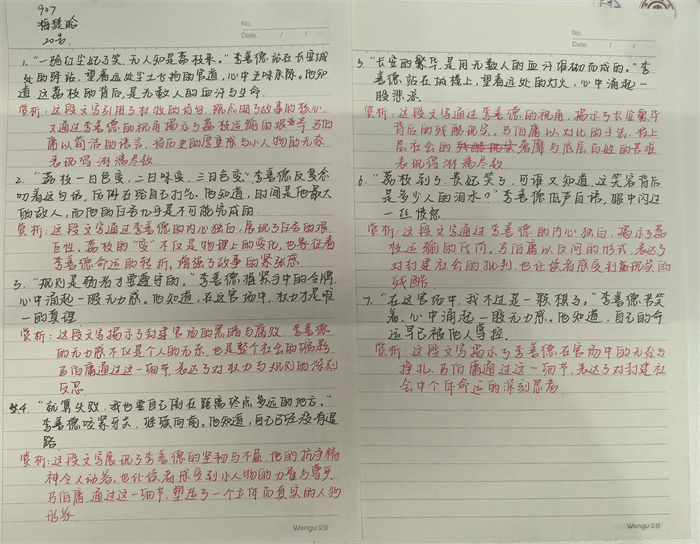 907
20号
No.
Date. / /
1. "一骑红尘妃子笑, 无人知是荔枝来。" 李善德站在长安城
处的驿站, 望着远处尘土飞扬的官道, 心中五味杂陈。他知
道, 这荔枝的背后, 是无数人的血汗与生命.
赏析: 这段文字引用了杜牧的诗句, 既点明了故事的核心,
又通过李善德的视角揭示了荔枝运输的艰辛. 马伯
庸以简洁的语言, 将历史的厚重感与小人物的无奈
表现得淋漓尽致
2. "荔枝一日色变, 二日味变, 三日色变." 李善德反复念
叨着这句话, 仿佛在给自己打气. 他知道, 时间是他最大
的敌人, 而他的任务几乎是不可能完成的.
赏析: 这段文字通过李善德的内心独白, 展现了任务的艰
巨性. 荔枝的"变"不仅是物理上的变化, 也象征着
李善德命运的转折, 增强了故事的紧张感.
3. "规则是弱者才要遵守的." 李善德握紧手中的令牌,
心中涌起一股无力感. 他知道, 在这官场中, 权力才是唯
一的真理
赏析: 这段文字揭示了封建官场的黑暗与腐败. 李善德
的无力感不仅是个人的无奈, 也是整个社会的缩影
马伯庸通过这一细节, 表达了对权力与规则的深刻
反思
4. "就算失败, 我也要自己倒在距离终点多远的地方."
李善德咬紧牙关, 继续向前. 他知道, 自己已经没有退
路.
赏析: 这段文字展现了李善德的坚韧与不屈, 他的抗争精
神令人动容, 也让读者感受到小人物的力量与尊严.
马伯庸通过这一细节, 塑造了一个立体而真实的人物
形象
Wengu 文谷
No.
Date. / /
5. "长安的繁华, 是用无数人的血汗堆砌而成的." 李
善德站在城楼上, 望着远处的灯火, 心中涌起一
股悲凉
赏析: 这段文字通过李善德的视角, 揭示了长安繁华
背后的残酷现实. 马伯庸以对比的手法, 将上
层社会的奢靡与底层百姓的苦难
表现得淋漓尽致
6. "荔枝到了, 贵妃笑了, 可谁又知道, 这笑容背后
是多少人的泪水?" 李善德低声自语, 眼中闪过
一丝愤怒
赏析: 这段文字通过李善德的内心独白, 揭示了荔
枝运输的代价. 马伯庸以反问的形式, 表达了
对封建社会的批判, 也让读者感受到现实的
残酷
7. "在这官场中, 我不过是一颗棋子." 李善德苦笑
着, 心中涌起一股无力感. 他知道, 自己的命
运早已被他人掌控.
赏析: 这段文字揭示了李善德在官场中的无奈与
挣扎. 马伯庸通过这一细节, 表达了对封建社
会中个体命运的深刻思考
Wengu 文谷